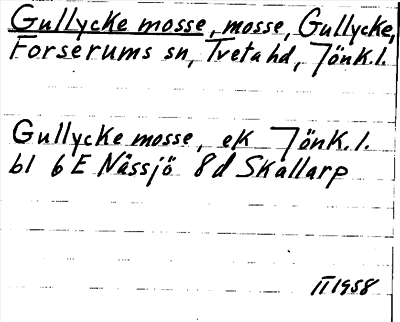 Gullycke mosse, mosse, Gullycke,
Forserums sn, Tveta hd, Jönk. l.
Gullycke mosse, ek Jönk. l.
bl 6 E Nässjö 8 d Skallarp
II 1958